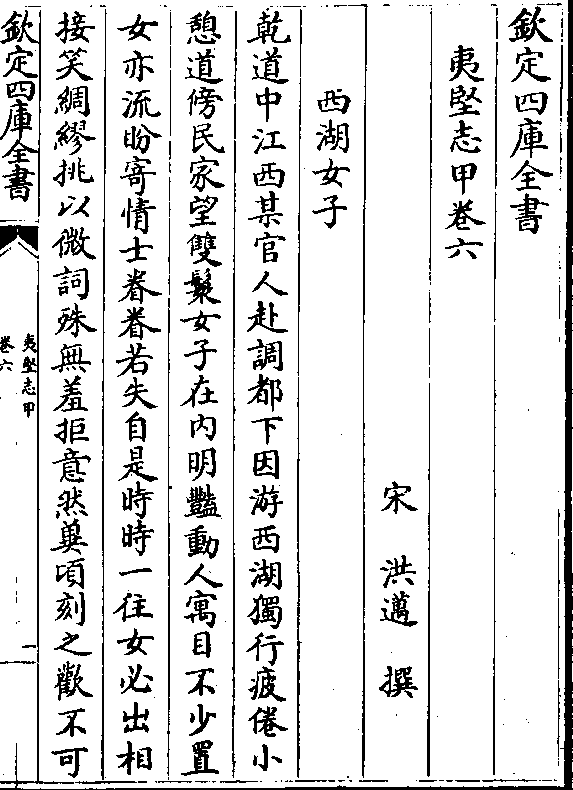 欽定四庫全書
夷堅志甲卷六
宋 洪邁 撰
西湖女子
乾道中江西某官人赴調都下因游西湖獨行疲倦小
憩道傍民家望雙鬟女子在内明豔動人寓目不少置
女亦流盼寄情士眷眷若失自是時時一往女必出相
接笑綢繆挑以微詞殊無羞拒意然兾頃刻之歡不可
欽定四庫全書
夷堅志甲
卷六
一